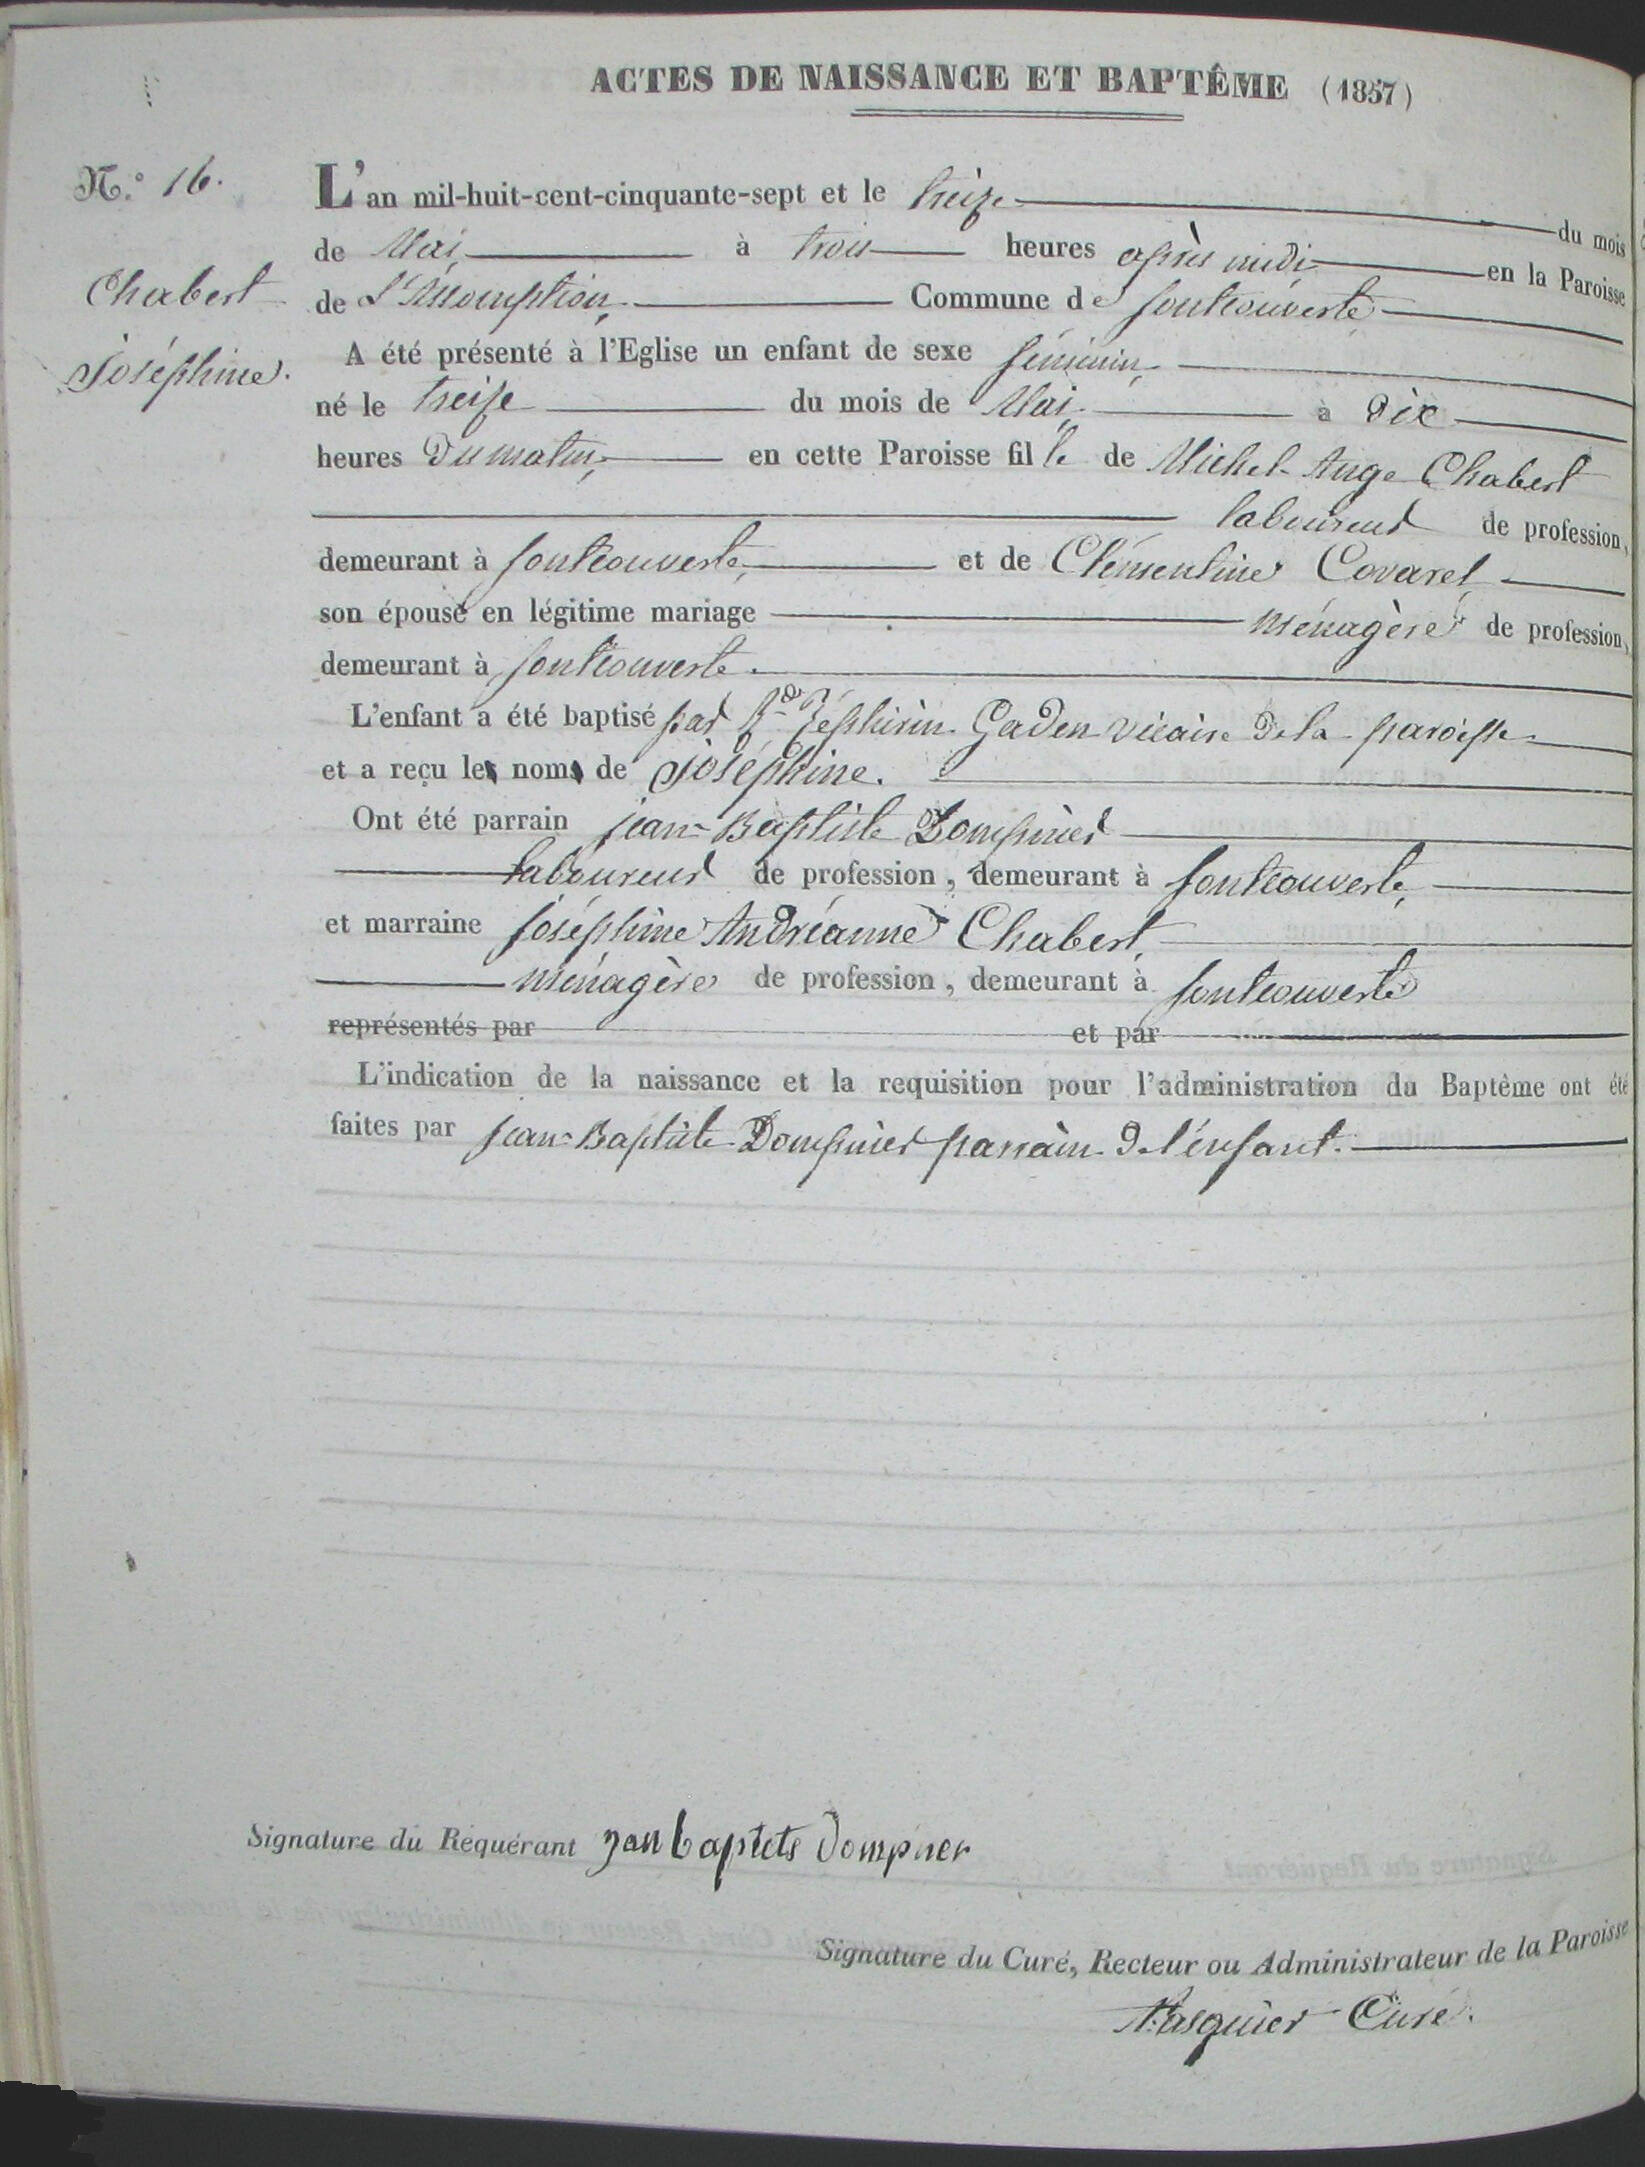 ACTES DE NAISSANCE ET BAPTÊME (1857)
N.° 16.
Chabert
Joséphine.
L'an mil-huit-cent-cinquante-sept et le treize du mois
de Mai, à trois heures après midi en la Paroisse
de L'Assomption, Commune de fontcouverte
A été présenté à l'Eglise un enfant de sexe féminin,
né le treize du mois de Mai, à Dix
heures Du matin, en cette Paroisse fille de Michel-Ange Chabert
laboureur de profession,
demeurant à fontcouverte, et de Clémentine Covarel,
son épouse en légitime mariage ménagère de profession,
demeurant à fontcouverte.
L'enfant a été baptisé par Rd Zéphirin Gaden vicaire De la paroisse
et a reçu le nom de Joséphine.
Ont été parrain jean-Baptiste Dompnier
laboureur de profession, demeurant à fontcouverte,
et marraine joséphine Andréanne Chabert,
ménagère de profession, demeurant à fontcouverte
représentés par et par
L'indication de la naissance et la requisition pour l'administration du Baptème ont été
faites par jean-Baptiste Dompnier parrain De l'enfant.
Signature du Requérant jan baptets dompner
Signature du Curé, Recteur ou Administrateur de la Paroisse
Pasquier Curé.